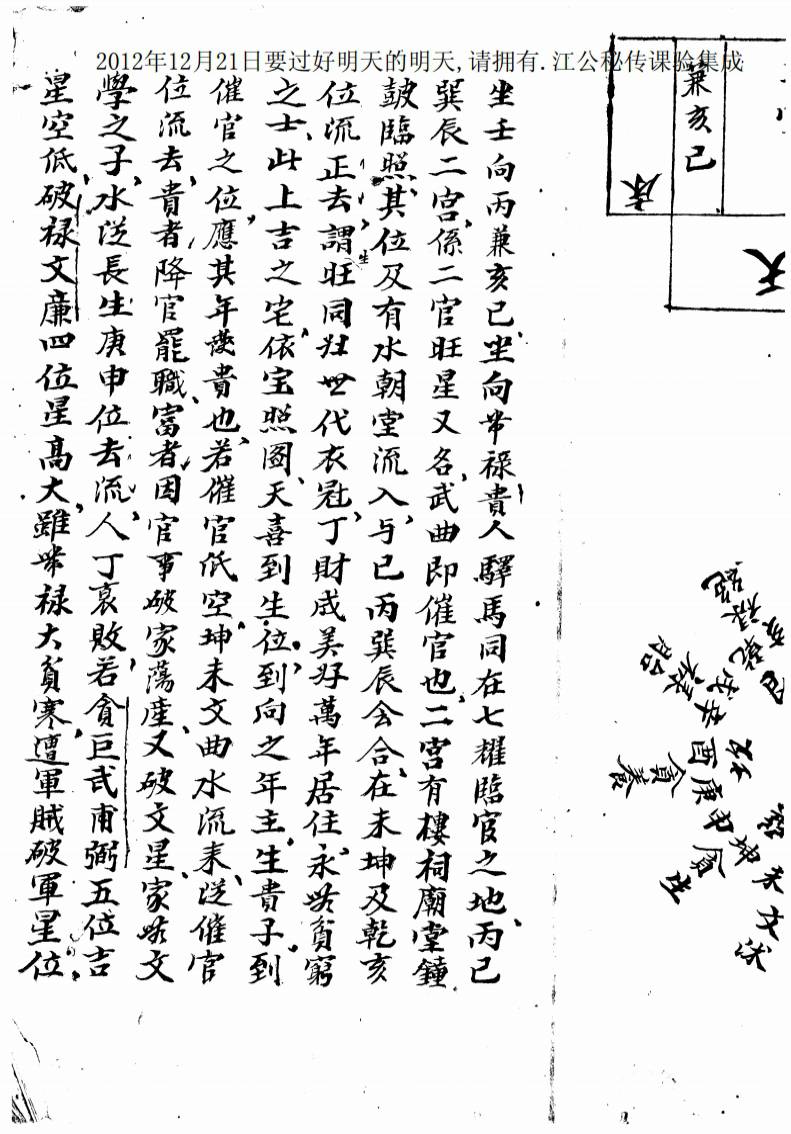 2012年12月21日要过好明天的明天,请拥有.江公秘传课验集成
兼亥己
床
天
坐壬向丙兼亥己、坐向带禄貴人驛馬同在七耀臨官之地、丙己
巽辰二宫係二官旺星又名武曲即催官也、二宫有樓祠廟堂鐘
皷臨照、其位及有水朝堂流入、与巳丙巽辰会合、在未坤及乾亥
位流正去、謂生旺同归世代衣冠、丁財成美好萬年居住、永無貧窮
之士、此上吉之宅、依宝照圖、天喜到生位、到向之年主生貴子、到
催官之位、應其年發貴也、若催官低空、坤未文曲水流来、従催官
位流去、貴者降官罷職、富者因官事破家蕩産、又破文星、家無文
學之子、水従長生庚申位去流、人丁衰敗、若貪巨武甫弼五位吉
星空低、破禄文廉四位星高大、雖带禄大貧寒、遭軍賊破軍星位、
未文沭
坤
申貪生
庚
酉貪養
辛
戌禄胎
乾
亥禄絕